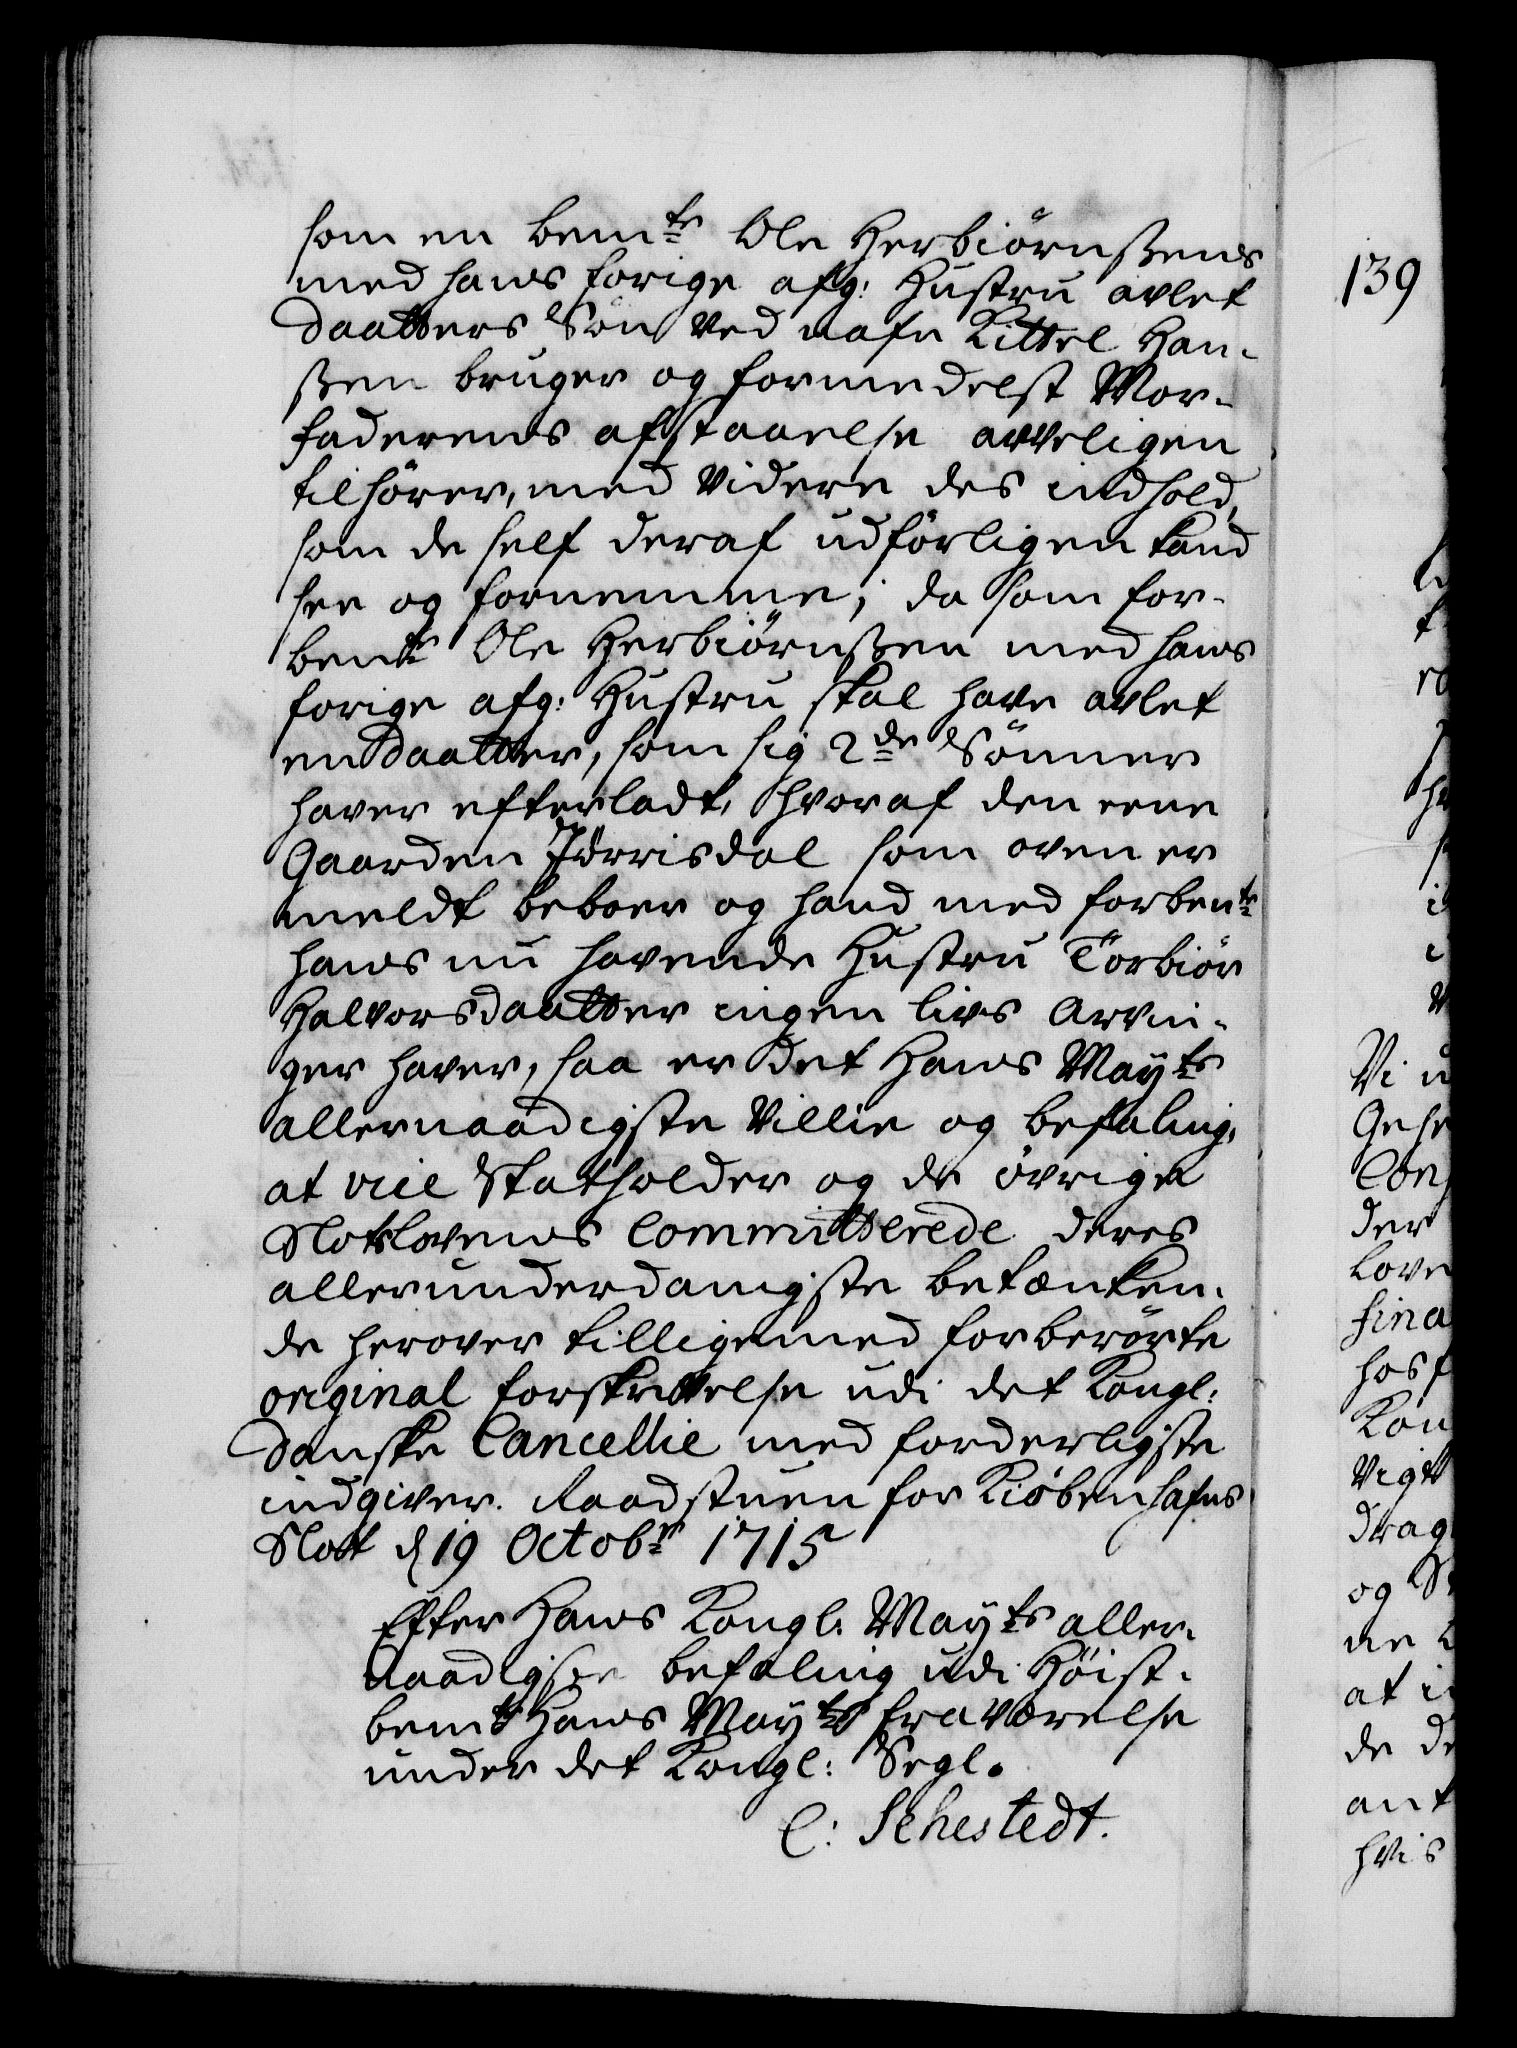 som en bemte Ole Herbiörnßens
med hans forige afg: Hustru avlet
Daatters Sön ved nafn Kittel Han-
ßen bruger og formedelst Mor-
faderens afstaaelse arveligen
tilhører, med videre des indhold,
som de self deraf udförligen kand
see og fornemme; da som for-
bente Ole Herbiörnßen med hans
forige afg: Hustru skal have avlet
en Daatter, som sig 2de Sönner
haver efterladt, hvoraf den eene
Gaarden Jörrisdal som oven er
meldt beboer og hand med forbente
hans nu havende Hustru Törbiör
Halvorsdaatter ingen livs Arvin-
ger haver, saa er det Hans Mayts
allernaadigste Villie og befaling,
at vice Statholder og de övrige
Slotslovens Committerede deres
allerunderdanigste betænken-
de herover tilligemed forberörte
original forskrivelse udi det Kongl:
Danske Cancellie med forderligste
indgiver. Raadstuen for Kiöbenhafns
Slott d 19 Octobr 1715
Efter Hans Kongl. Mayts aller-
naadigste befaling udi Höist-
bemte Hans Mayts fraværelse
under det Kongl: Segl.
C: Sehestedt.
139
Vi u
Gehe
Con
der
Love
fina
hosf
Kon
vigt
drag
og S
ne
at i
de de
ant
hvis